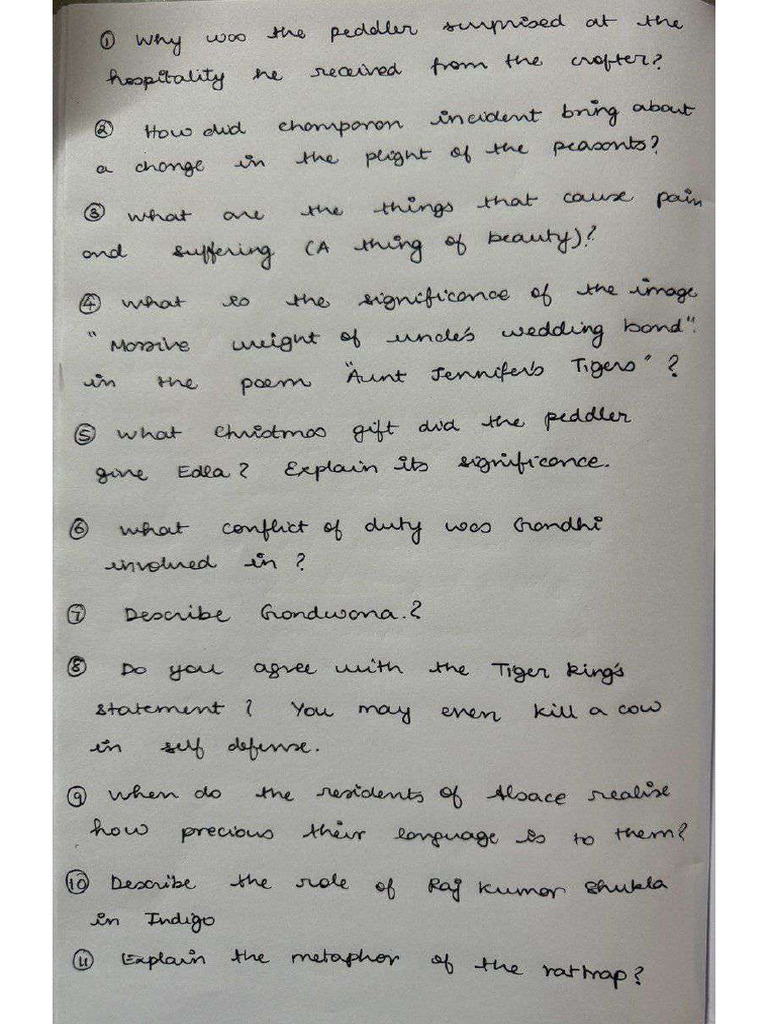 ① Why was the peddler surprised at the
hospitality he received from the crofter?
② How did champaran incident bring about
a change in the plight of the peasants?
③ What are the things that cause pain
and suffering (A thing of beauty)?
④ What is the significance of the image
"Massive weight of uncle's wedding band".
in the poem "Aunt Jennifer's Tigers" ?
⑤ What christmas gift did the peddler
give Edla? Explain its significance.
⑥ What conflict of duty was Gandhi
involved in ?
⑦ Describe Gondwana.?
⑧ Do you agree with the Tiger king's
statement ? You may even kill a cow
in self defense.
⑨ When do the residents of Alsace realise
how precious their language is to them?
⑩ Describe the role of Raj Kumar Shukla
in Indigo
⑪ Explain the metaphor of the rattrap?